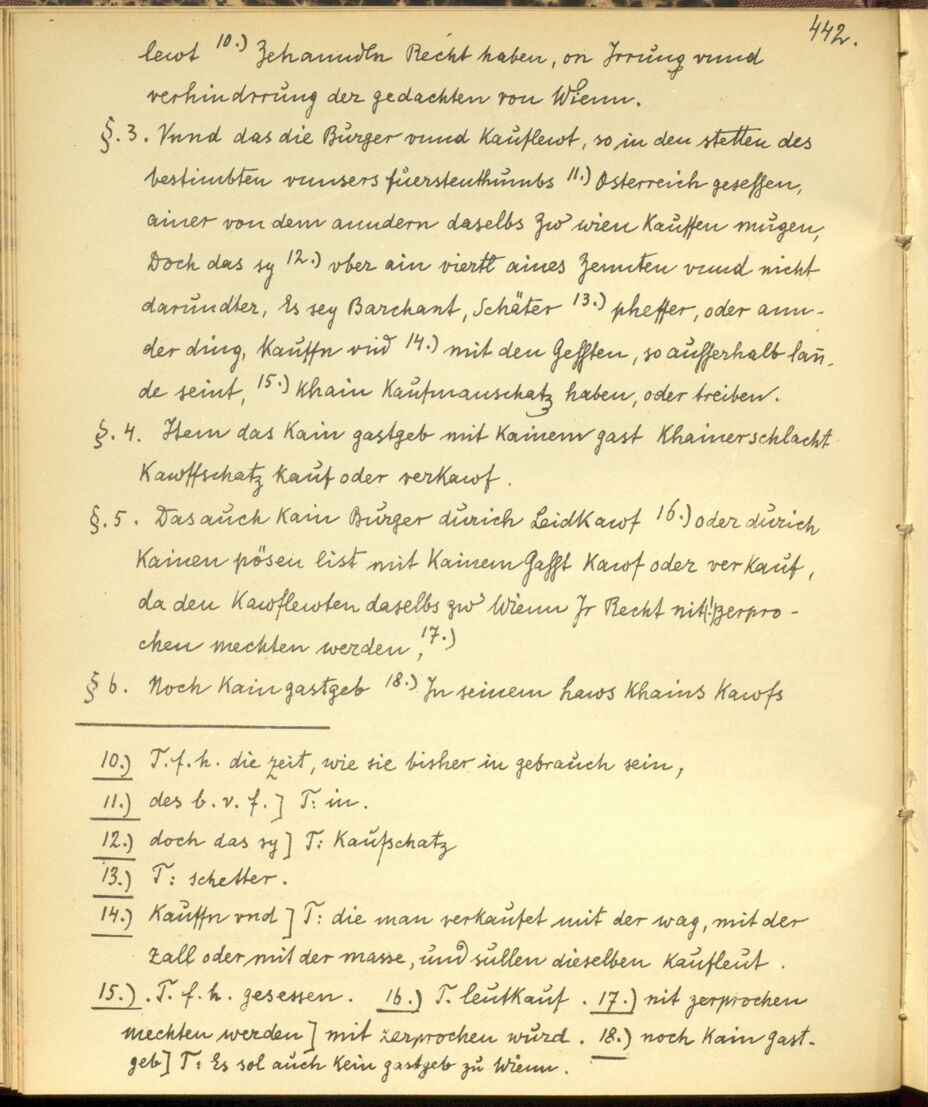 442.
lewt 10.) Zehanndln Recht haben, on Jrrung vnnd
verhindrrung der gedachten von Wienn.
§.3. Vnnd das die Burger vnnd Kauflewt, so in den stetten des
bestimbten vnnsers fuerstenthumbs 11.) Osterreich gesessen,
ainer von dem anndern daselbs Zw wien Kauffen mugen,
Doch das sy 12.) vber ain viertl aines Zennten vnnd nicht
darundter, Es sey Barchant, Schäter 13.) pheffer, oder ann-
der ding, Kauffn vnd 14.) mit den Gessten, so ausserhalb lan̄-
de seint, 15.) Khain Kaufmanschatz haben, oder treiben.
§.4. Item das Kain gastgeb mit Kainem gast Khainerschlacht
Kawffschatz kauf oder verkawf.
§.5. Das auch Kain Burger durich Leidkawf 16.) oder durich
Kainen pösen list mit Kainem Gasst Kawf oder verkauf,
da den Kawflewten daselbs zw Wienn Jr Recht nit(!)zerpro-
chen mechten werden, 17.)
§ 6. Noch Kain gastgeb 18.) In seinem haws Khains Kawfs
10.) T. f. h. die zeit, wie sie bisher in gebrauch sein,
11.) des b. v. f.] T: in.
12.) doch das sy] T: Kaufschatz
13.) T: schetter.
14.) Kauffn vnd] T: die man verkaufet mit der wag, mit der
zall oder mit der masse, und sullen dieselben Kaufleut.
15.). T. f. h. gesessen. 16.) T. leutkauf. 17.) nit zerprochen
mechten werden] mit zerprochen wurd. 18.) noch Kain gast-
geb] T: Es sol auch kein gastgeb zu Wienn.